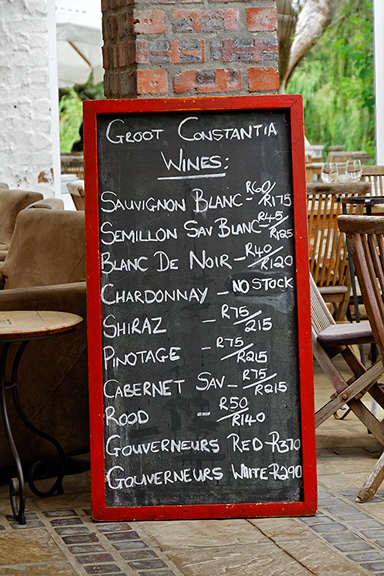 GROOT CONSTANTIA
WINES:
SAUVIGNON BLANC - R60/R175
SEMILLON SAV BLANC - R45/R125
BLANC DE NOIR - R40/R120
CHARDONNAY - NO STOCK
SHIRAZ - R75/215
PINOTAGE - R75/R215
CABERNET SAV - R75/R215
ROOD - R50/R140
GOUVERNEURS RED - R370
GOUVERNEURS WHITE - R290